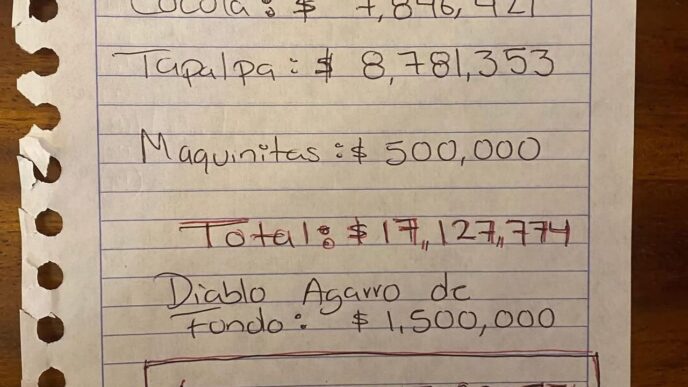 Cocola: $ 7,846,421
Tapalpa: $ 8,781,353
Maquinitas: $ 500,000
Total: $ 17,127,774
Diablo Agarro de
fondo: $ 1,500,000